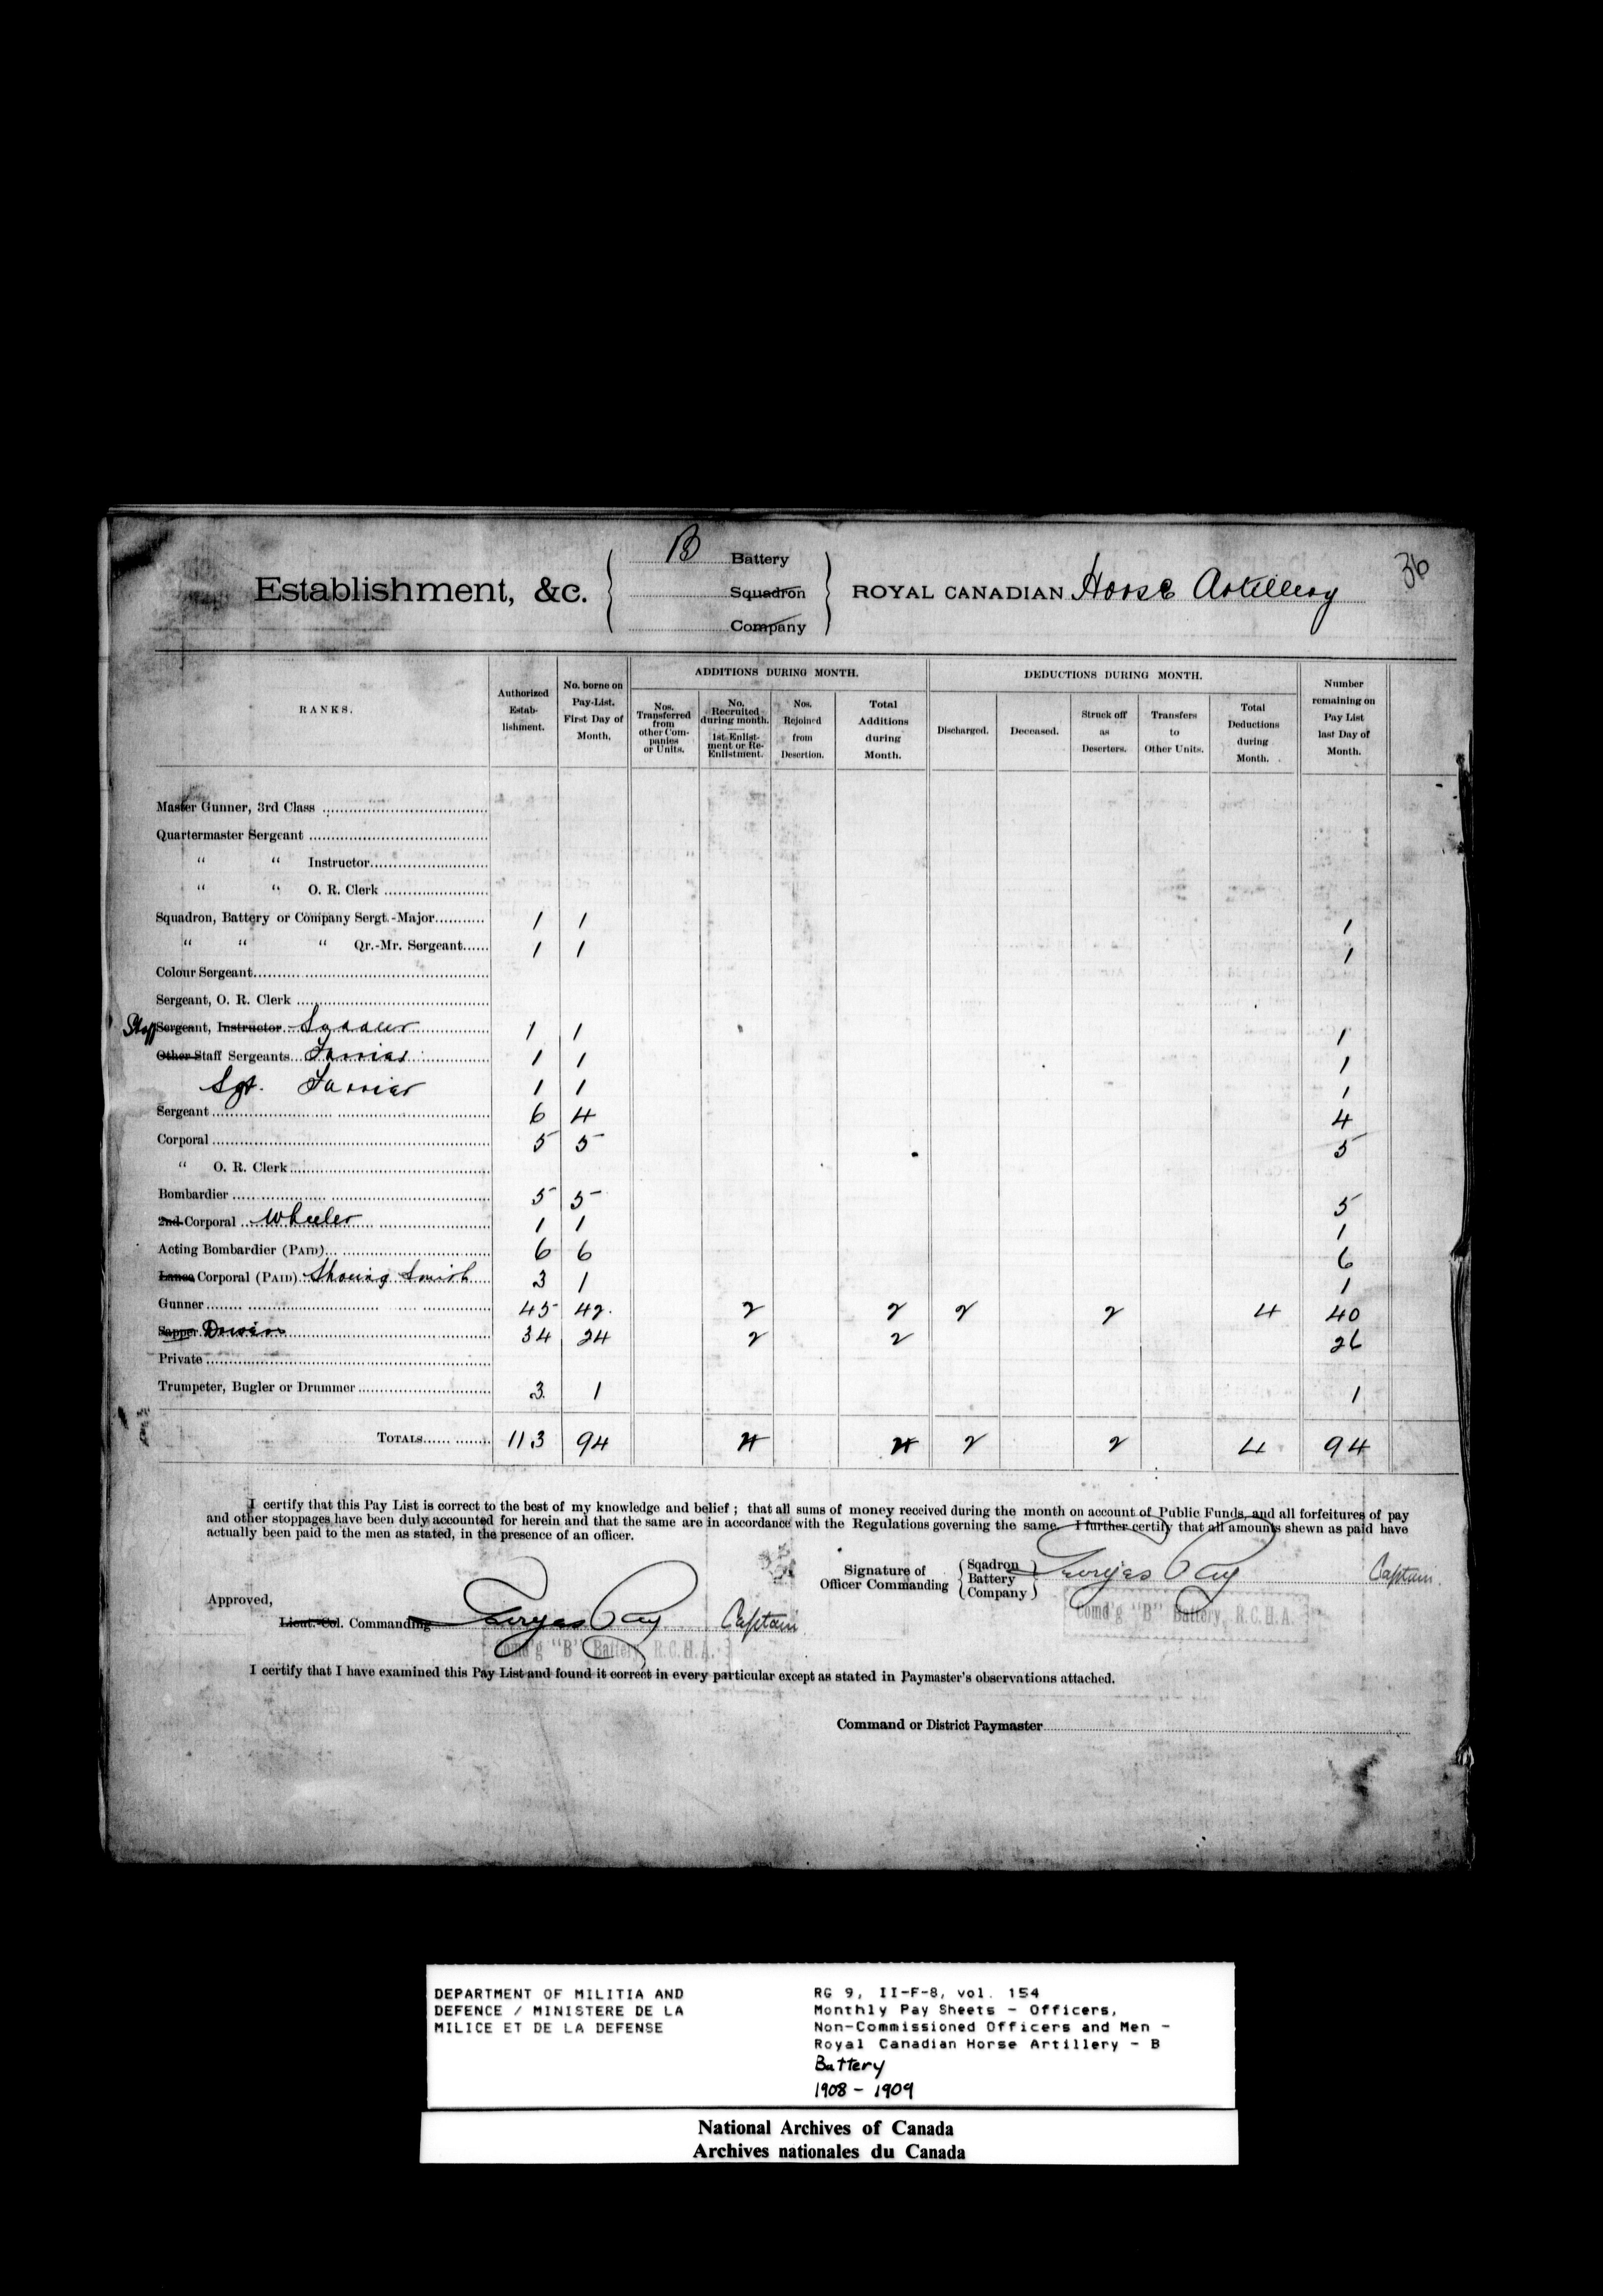 36
B Battery
Establishment, &c. Squadron ROYAL CANADIAN Horse Artillery
Company
RANKS. Authorized Establishment. No. borne on Pay-List. First Day of Month. ADDITIONS DURING MONTH. DEDUCTIONS DURING MONTH. Number remaining on Pay List last Day of Month.
Nos. Transferred from other Companies or Units. No. Recruited during month. 1st Enlistment or Re-Enlistment. Nos. Rejoined from Desertion. Total Additions during Month. Discharged. Deceased. Struck off as Deserters. Transfers to Other Units. Total Deductions during Month.
Master Gunner, 3rd Class
Quartermaster Sergeant
" " Instructor
" " O. R. Clerk
Squadron, Battery or Company Sergt.-Major 1 1 1
" " " Qr.-Mr. Sergeant 1 1 1
Colour Sergeant
Sergeant, O. R. Clerk
Staff Sergeant, Instructor Saddler 1 1 1
Other Staff Sergeants Farrier 1 1 1
Sgt. Farrier 1 1 1
Sergeant 6 4 4
Corporal 5 5 5
" O. R. Clerk
Bombardier 5 5 5
2nd Corporal Wheeler 1 1 1
Acting Bombardier (PAID) 6 6 6
Lance Corporal (PAID) Shoeing Smith 3 1 1
Gunner 45 42 2 2 2 2 4 40
Sapper Driver 34 24 2 2 26
Private
Trumpeter, Bugler or Drummer 3 1 1
TOTALS 113 94 4 4 2 2 4 94
I certify that this Pay List is correct to the best of my knowledge and belief; that all sums of money received during the month on account of Public Funds, and all forfeitures of pay
and other stoppages have been duly accounted for herein and that the same are in accordance with the Regulations governing the same. I further certify that all amounts shewn as paid have
actually been paid to the men as stated, in the presence of an officer.
Signature of Officer Commanding Sqadron Battery Company Captain.
Comd'g "B" Battery, R.C.H.A.
Approved,
Lieut.-Col. Commanding Captain
Comd'g "B" Battery, R.C.H.A.
I certify that I have examined this Pay List and found it correct in every particular except as stated in Paymaster's observations attached.
Command or District Paymaster
DEPARTMENT OF MILITIA AND
DEFENCE / MINISTERE DE LA
MILICE ET DE LA DEFENSE
RG 9, II-F-8, vol. 154
Monthly Pay Sheets - Officers,
Non-Commissioned Officers and Men -
Royal Canadian Horse Artillery - B
Battery
1908 - 1909
National Archives of Canada
Archives nationales du Canada